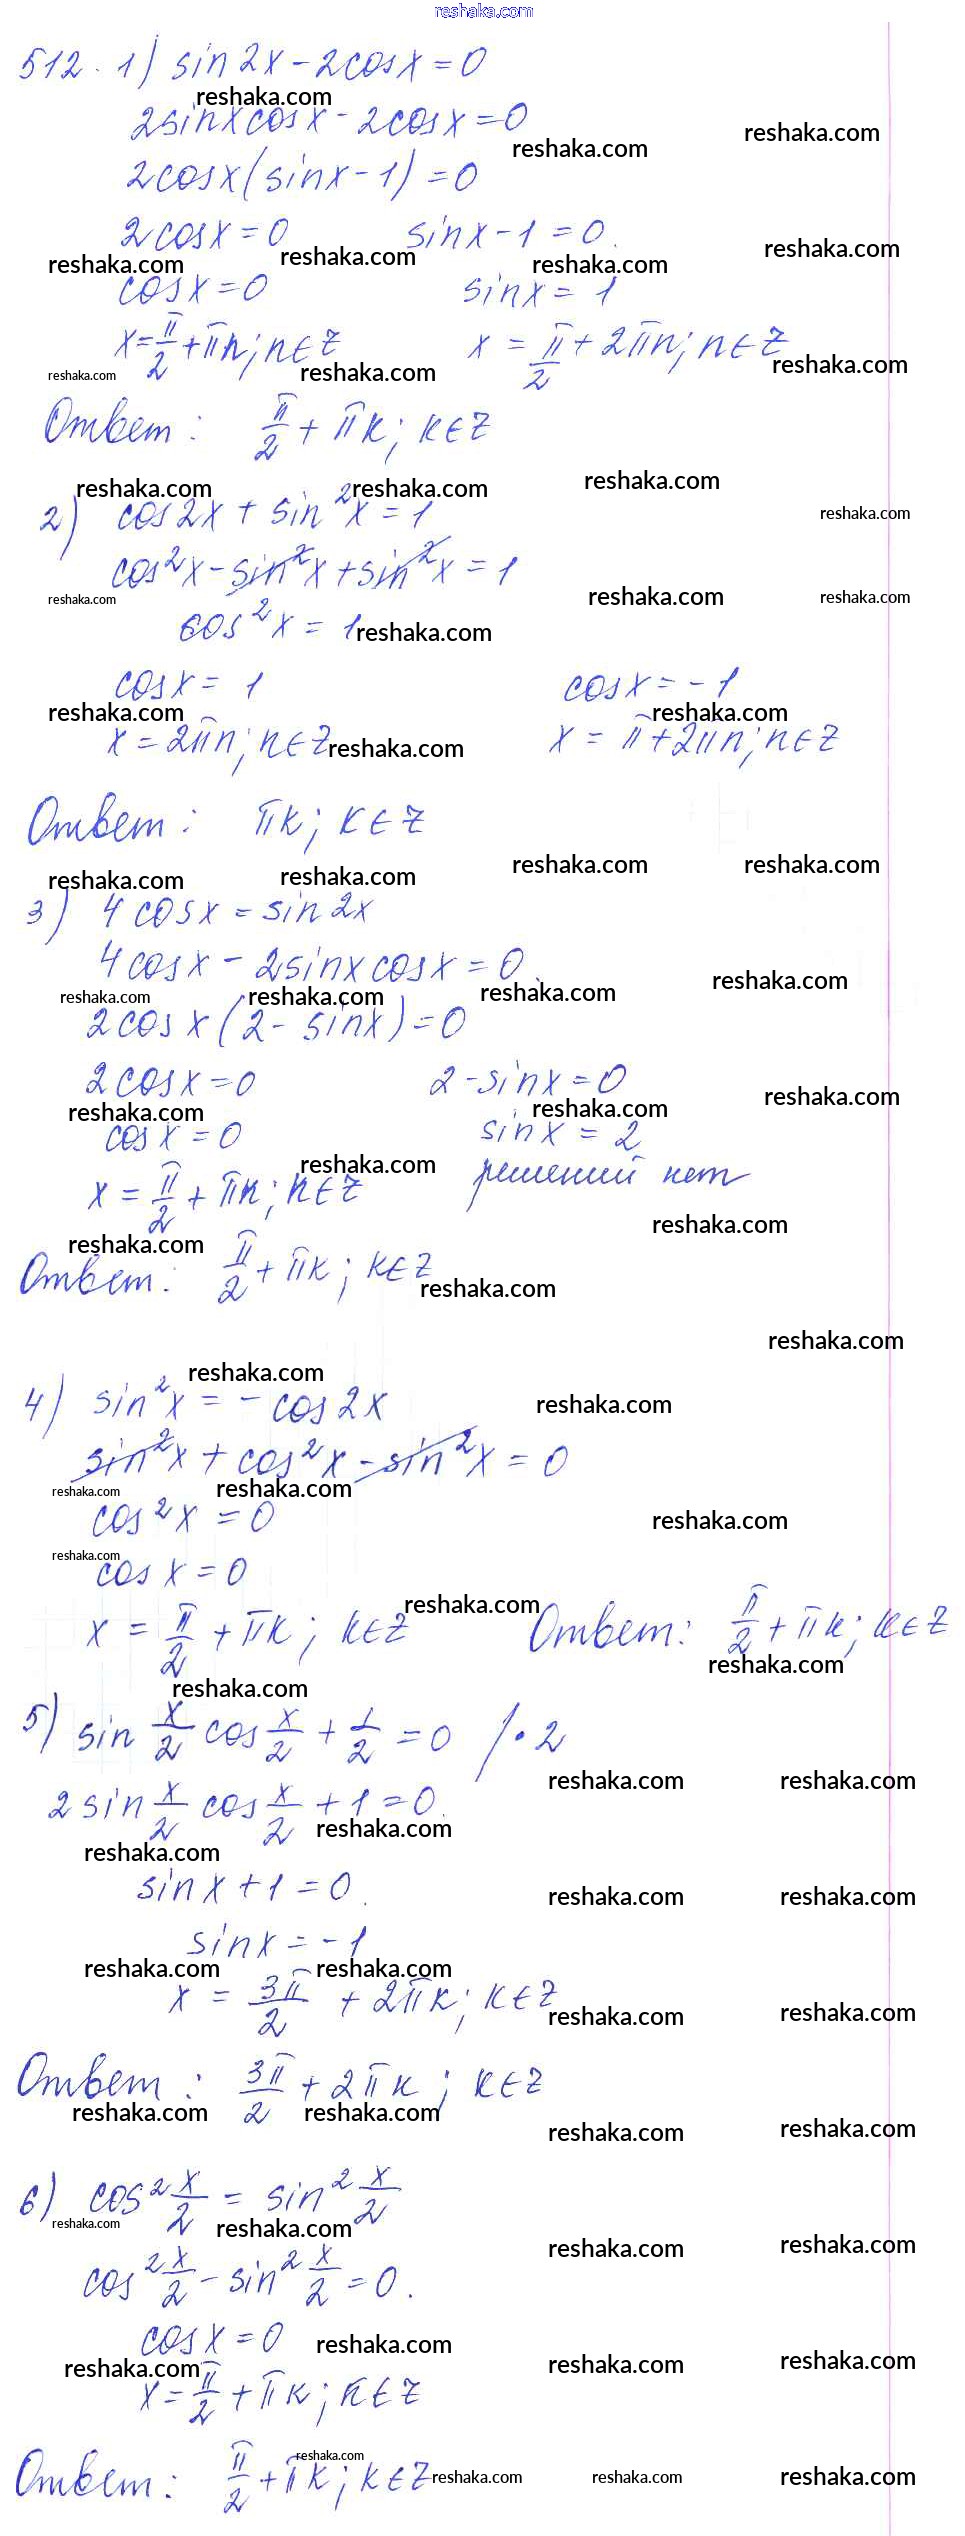 reshaka.com
512. 1) sin2x - 2cosx = 0
2sinxcosx - 2cosx = 0
2cosx(sinx - 1) = 0
2cosx = 0 sinx - 1 = 0.
cosx = 0 sinx = 1
x = π/2 + πn; n∈Z x = π/2 + 2πn; n∈Z
Ответ: π/2 + πk; k∈Z
2) cos2x + sin²x = 1
cos²x - sin²x + sin²x = 1
cos²x = 1
cosx = 1 cosx = -1
x = 2πn; n∈Z x = π + 2πn; n∈Z
Ответ: πk; k∈Z
3) 4cosx = sin2x
4cosx - 2sinxcosx = 0.
2cosx(2 - sinx) = 0
2cosx = 0 2 - sinx = 0
cosx = 0 sinx = 2
x = π/2 + πk; k∈Z решений нет
Ответ: π/2 + πk; k∈Z
4) sin²x = -cos2x
sin²x + cos²x - sin²x = 0
cos²x = 0
cosx = 0
x = π/2 + πk; k∈Z Ответ: π/2 + πk; k∈Z
5) sin x/2 cos x/2 + 1/2 = 0 /·2
2sin x/2 cos x/2 + 1 = 0.
sinx + 1 = 0.
sinx = -1
x = 3π/2 + 2πk; k∈Z
Ответ: 3π/2 + 2πk; k∈Z
6) cos² x/2 = sin² x/2
cos² x/2 - sin² x/2 = 0.
cosx = 0
x = π/2 + πk; k∈Z
Ответ: π/2 + πk; k∈Z